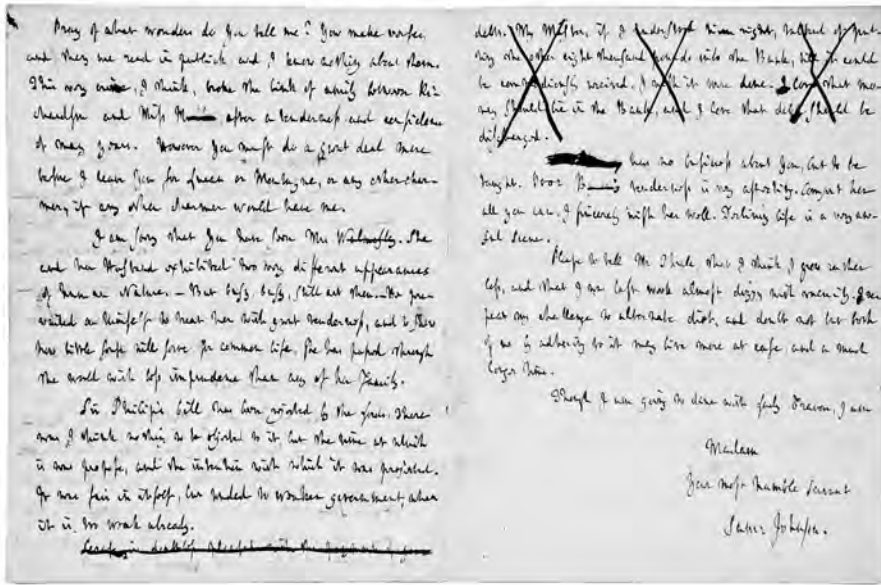 Pray of what wonders do you tell me? You make verses,
and they are read in publick and I know nothing about them.
This very crime, I think, broke the link of amity between Ri-
chardson and Miss M——, after a tenderness and confidence
of many years. However you must do a great deal more
before I leave you for Lucan or Montague, or any other char-
mer, if any other charmer would have me.
I am sorry that you have seen Mrs Walmesley. She
and her Husband exhibited two very different appearances
of human Nature. — But busy, busy, still art thou. — He pre-
vailed on himself to treat her with great tenderness, and to shew
how little sense will serve for common life. She has passed through
the world with less imprudence than any of her Family.
Sir Philip's bill has been rejected by the Lords. There
was I think nothing to be objected to it, but the time at which
it was proposed, and the intention with which it was projected.
It was fair in itself, but tended to weaken government, when
it is too weak already.
with the payment of your
debts. My Master, if I understood him right, talked of put-
ting the other eight thousand pounds into the Bank, till it could
be commodiously received, I wish it were done. I love that mo-
ney should be in the Bank, and I love that debts should be
discharged.
has no business about you, but to be
taught. Poor B——'s tenderness is very affecting. Comfort her
all you can, I sincerely wish her well. Declining life is a very aw-
ful scene.
Please to tell Mr Thrale, that I think I grow rather
less, and that I was last week almost dizzy with vacuity. I re-
peat my challenge to alternate diet, and doubt not but both
of us by adhering to it may live more at ease, and a much
longer time.
Though I am going to dine with Lady Craven, I am
Madam
Your most humble Servant
Sam: Johnson.